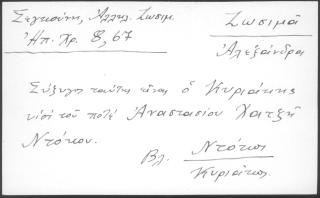 Σεγκούνη, Ἀλληλ. Ζωσιμ.
Ἠπ. Χρ. 8, 67
Ζωσιμᾶ
Ἀλεξάνδρα
Σύζυγος ταύτης εἶναι ὁ Κυριάκης
υἱός τοῦ ποτέ Ἀναστασίου Χατζῆ
Ντόκου.
Βλ. Ντόκος
Κυριάκος.